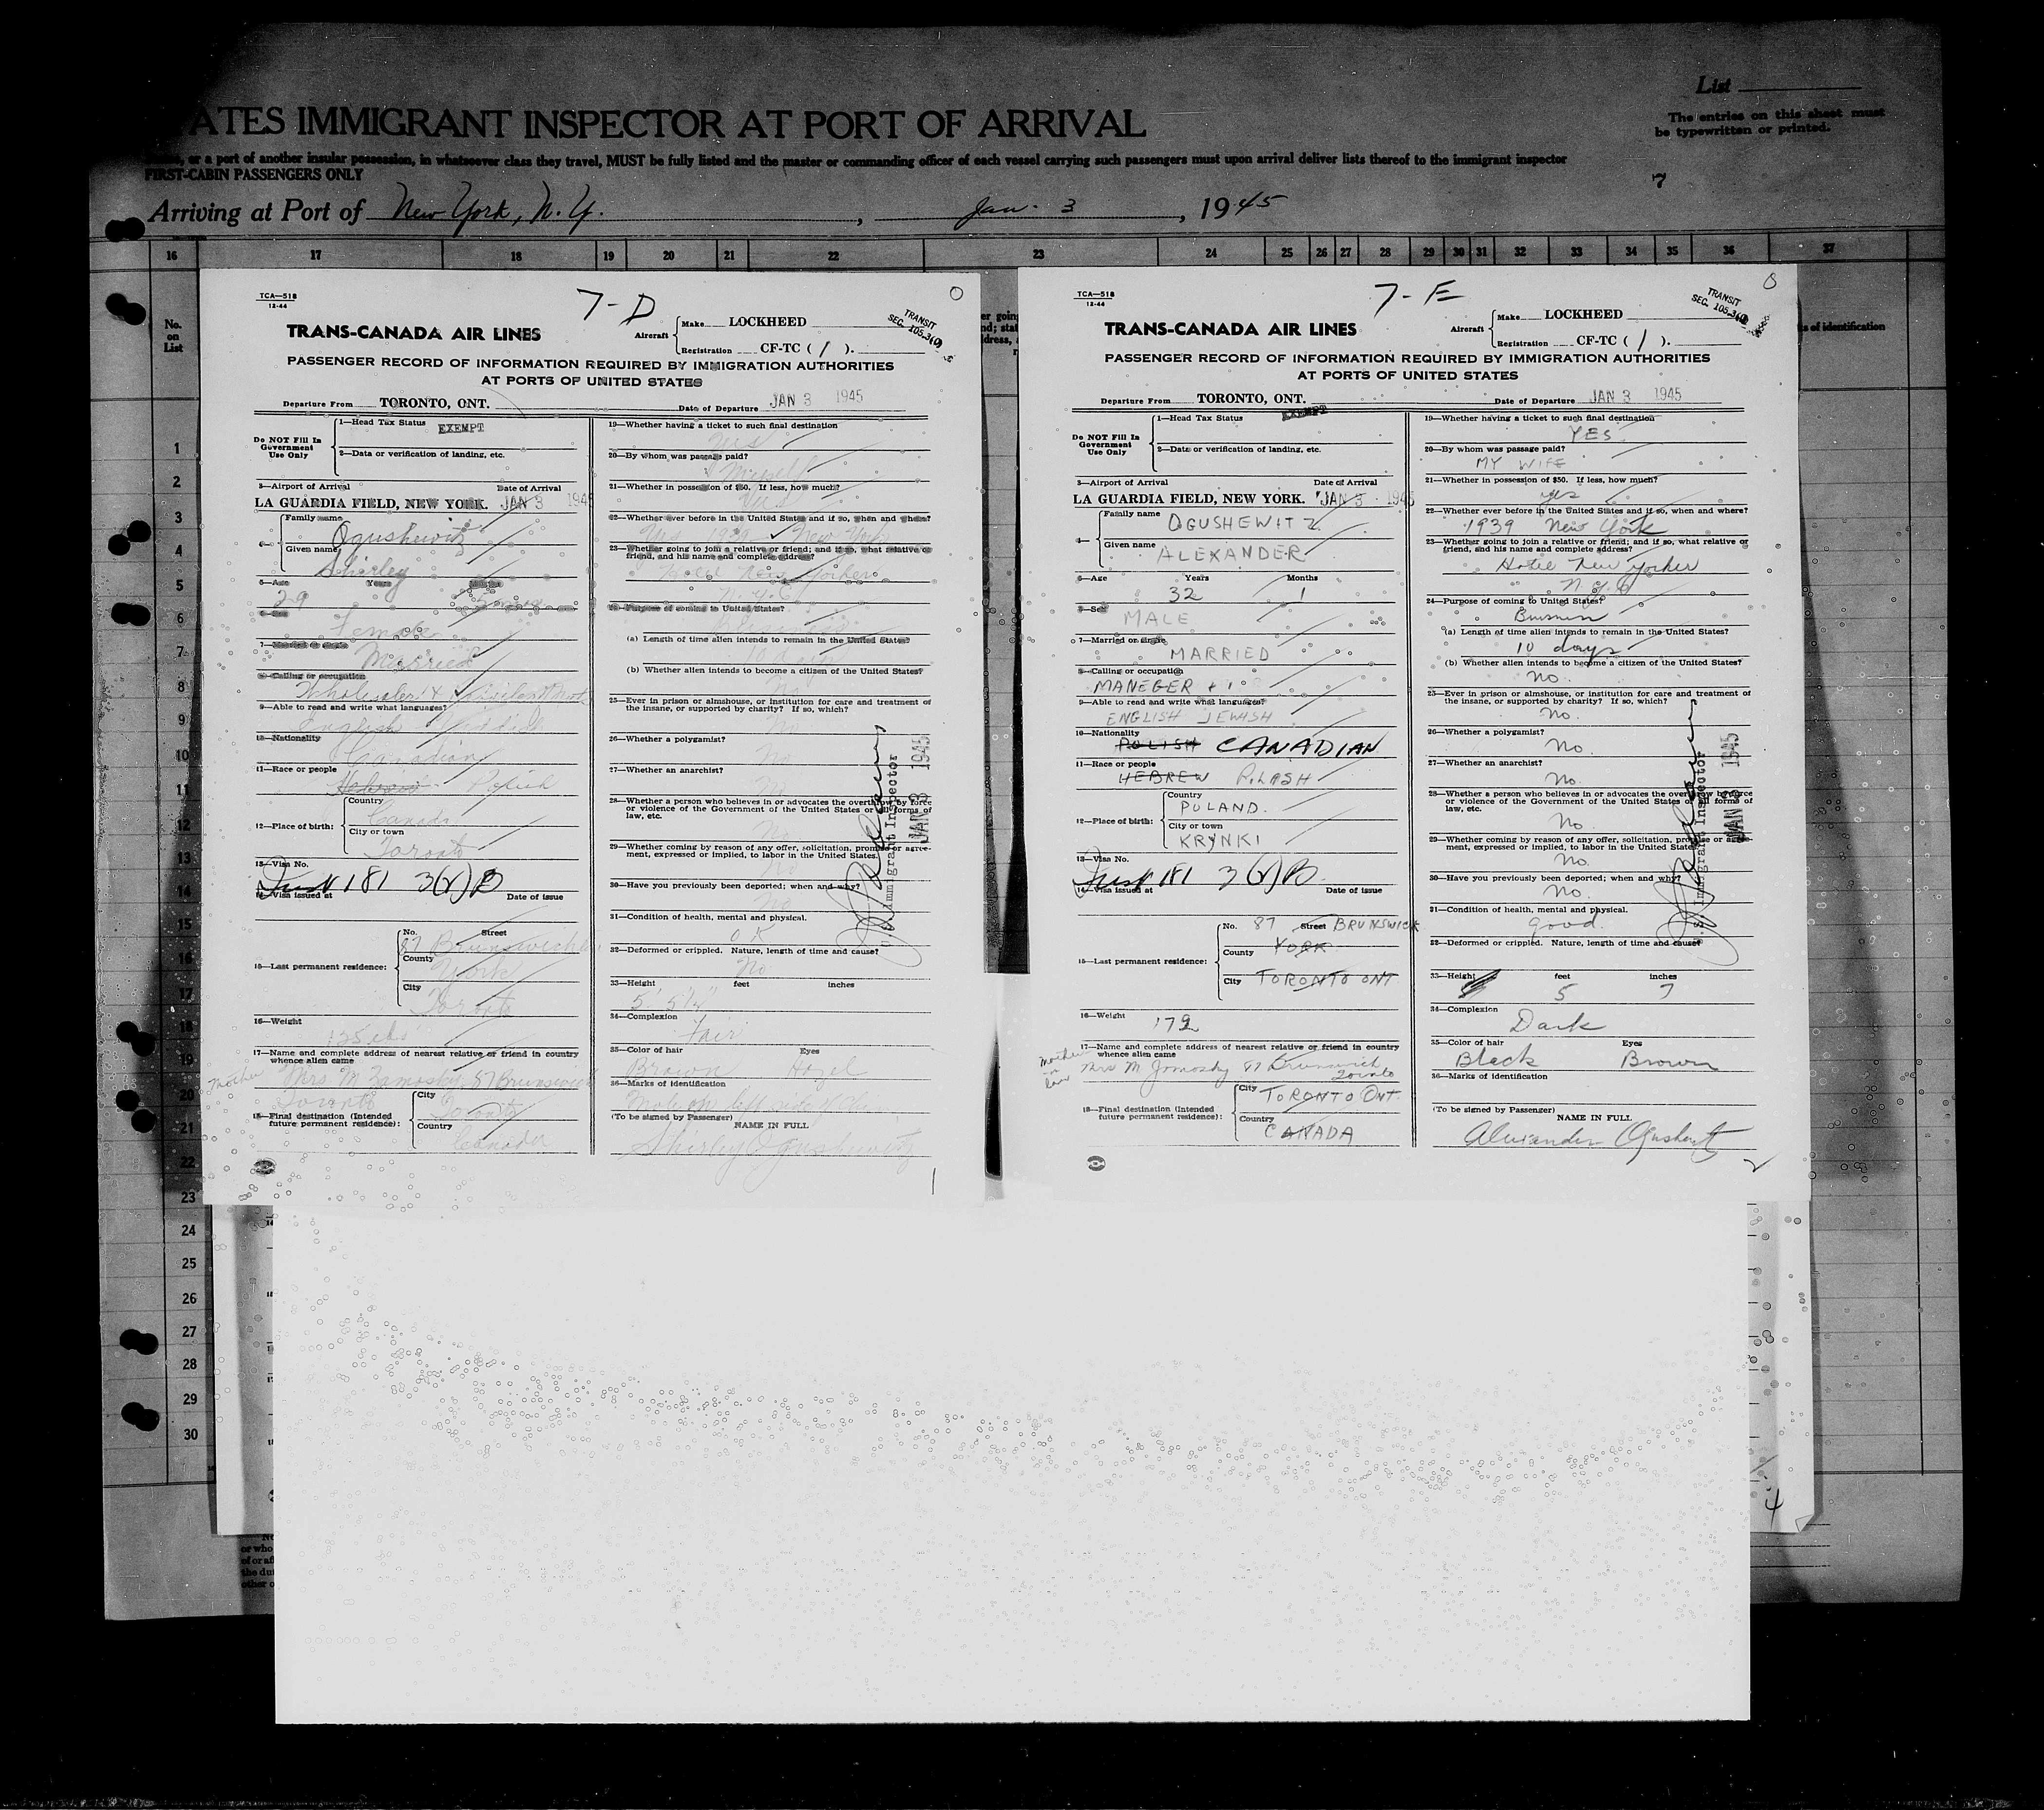 List
ATES IMMIGRANT INSPECTOR AT PORT OF ARRIVAL
The entries on this sheet must
be typewritten or printed.
or a part of another insular possession, in whatsoever class they travel, MUST be fully listed and the master or commanding officer of each vessel carrying such passengers must upon arrival deliver lists thereof to the immigrant inspector
FIRST-CABIN PASSENGERS ONLY
7
Arriving at Port of New York, N.Y., Jan. 3, 1945
16 17 18 19 20 21 22 23 24 25 26 27 28 29 30 31 32 33 34 35 36 37
No.
on
List
s of identification
1
2
3
4
5
6
7
8
9
10
11
12
13
14
15
16
17
18
19
20
21
22
23
24
25
26
27
28
29
30
TCA—518
12-44
7-D
TRANSIT
SEC. 105.3(
TRANS-CANADA AIR LINES
Aircraft
Make LOCKHEED
Registration CF-TC ( 1 ).
PASSENGER RECORD OF INFORMATION REQUIRED BY IMMIGRATION AUTHORITIES
AT PORTS OF UNITED STATES
Departure From TORONTO, ONT. Date of Departure JAN 3 1945
Do NOT Fill In
Government
Use Only
1—Head Tax Status EXEMPT
2—Data or verification of landing, etc.
3—Airport of Arrival Date of Arrival
LA GUARDIA FIELD, NEW YORK. JAN 3 1945
4—
Family name
Ogushewitz
Given name
Shirley
5—Age Years
29
Female
7—Married or single
Married
8—Calling or occupation
9—Able to read and write what languages?
English Yiddish
10—Nationality
Canadian
11—Race or people
Hebrew Polish
12—Place of birth:
Country
Canada
City or town
Toronto
13—Visa No.
181 3(
14—Visa issued at Date of issue
15—Last permanent residence:
No. Street
87 Brunswick
County
York
City
Toronto
16—Weight
17—Name and complete address of nearest relative or friend in country
whence alien came
mother Mrs M Zamosky, 87 Brunswick
Toronto
18—Final destination (Intended
future permanent residence):
City
Toronto
Country
Canada
19—Whether having a ticket to such final destination
yes
20—By whom was passage paid?
Myself
21—Whether in possession of $50. If less, how much?
yes
22—Whether ever before in the United States and if so, when and where?
Yes 1939 New York
23—Whether going to join a relative or friend; and if so, what relative or
friend, and his name and complete address?
Hotel New Yorker
N.Y.C
24—Purpose of coming to United States?
(a) Length of time alien intends to remain in the United States?
(b) Whether alien intends to become a citizen of the United States?
No
25—Ever in prison or almshouse, or institution for care and treatment of
the insane, or supported by charity? If so, which?
No
26—Whether a polygamist?
No
27—Whether an anarchist?
No
28—Whether a person who believes in or advocates the overthrow by force
or violence of the Government of the United States or all forms of
law, etc.
No
29—Whether coming by reason of any offer, solicitation, promise or agree-
ment, expressed or implied, to labor in the United States.
No
30—Have you previously been deported; when and why?
No
31—Condition of health, mental and physical.
OK
32—Deformed or crippled. Nature, length of time and cause?
No
33—Height feet inches
5' 5½"
34—Complexion
Fair
35—Color of hair Eyes
Brown Hazel
36—Marks of identification
(To be signed by Passenger)
NAME IN FULL
Shirley Ogushewitz
1
Immigrant Inspector
JAN 3 1945
TCA—518
12-44
7-E
TRANSIT
SEC. 105.3(
TRANS-CANADA AIR LINES
Aircraft
Make LOCKHEED
Registration CF-TC ( 1 ).
PASSENGER RECORD OF INFORMATION REQUIRED BY IMMIGRATION AUTHORITIES
AT PORTS OF UNITED STATES
Departure From TORONTO, ONT. Date of Departure JAN 3 1945
Do NOT Fill In
Government
Use Only
1—Head Tax Status EXEMPT
2—Data or verification of landing, etc.
3—Airport of Arrival Date of Arrival
LA GUARDIA FIELD, NEW YORK. JAN 3 1945
4—
Family name
OGUSHEWITZ
Given name
ALEXANDER
5—Age Years Months
32 1
6—Sex
MALE
7—Married or single
MARRIED
8—Calling or occupation
MANEGER
9—Able to read and write what languages?
ENGLISH JEWISH
10—Nationality
POLISH CANADIAN
11—Race or people
HEBREW POLISH
12—Place of birth:
Country
POLAND.
City or town
KRYNKI
13—Visa No.
181 3(
14—Visa issued at Date of issue
15—Last permanent residence:
No. 87 Street BRUNSWICK
YORK
County
City TORONTO ONT
16—Weight
172
17—Name and complete address of nearest relative or friend in country
whence alien came
mother in law
Mrs M Zamosky 87 Brunswick
Toronto
18—Final destination (Intended
future permanent residence):
City
TORONTO ONT
Country
CANADA
19—Whether having a ticket to such final destination
YES.
20—By whom was passage paid?
MY WIFE
21—Whether in possession of $50. If less, how much?
yes
22—Whether ever before in the United States and if so, when and where?
1939 New York
23—Whether going to join a relative or friend; and if so, what relative or
friend, and his name and complete address?
Hotel New Yorker
N.Y.C
24—Purpose of coming to United States?
Business
(a) Length of time alien intends to remain in the United States?
10 days
(b) Whether alien intends to become a citizen of the United States?
No.
25—Ever in prison or almshouse, or institution for care and treatment of
the insane, or supported by charity? If so, which?
No.
26—Whether a polygamist?
No.
27—Whether an anarchist?
No.
28—Whether a person who believes in or advocates the overthrow by force
or violence of the Government of the United States or all forms of
law, etc.
No.
29—Whether coming by reason of any offer, solicitation, promise or agree-
ment, expressed or implied, to labor in the United States.
No.
30—Have you previously been deported; when and why?
No.
31—Condition of health, mental and physical.
good.
32—Deformed or crippled. Nature, length of time and cause?
33—Height feet inches
5 7
34—Complexion
Dark
35—Color of hair Eyes
Black Brown
36—Marks of identification
(To be signed by Passenger)
NAME IN FULL
Alexander Ogushewitz
2
Immigrant Inspector
JAN 3 1945
4
or who
of or af
the dut
other o